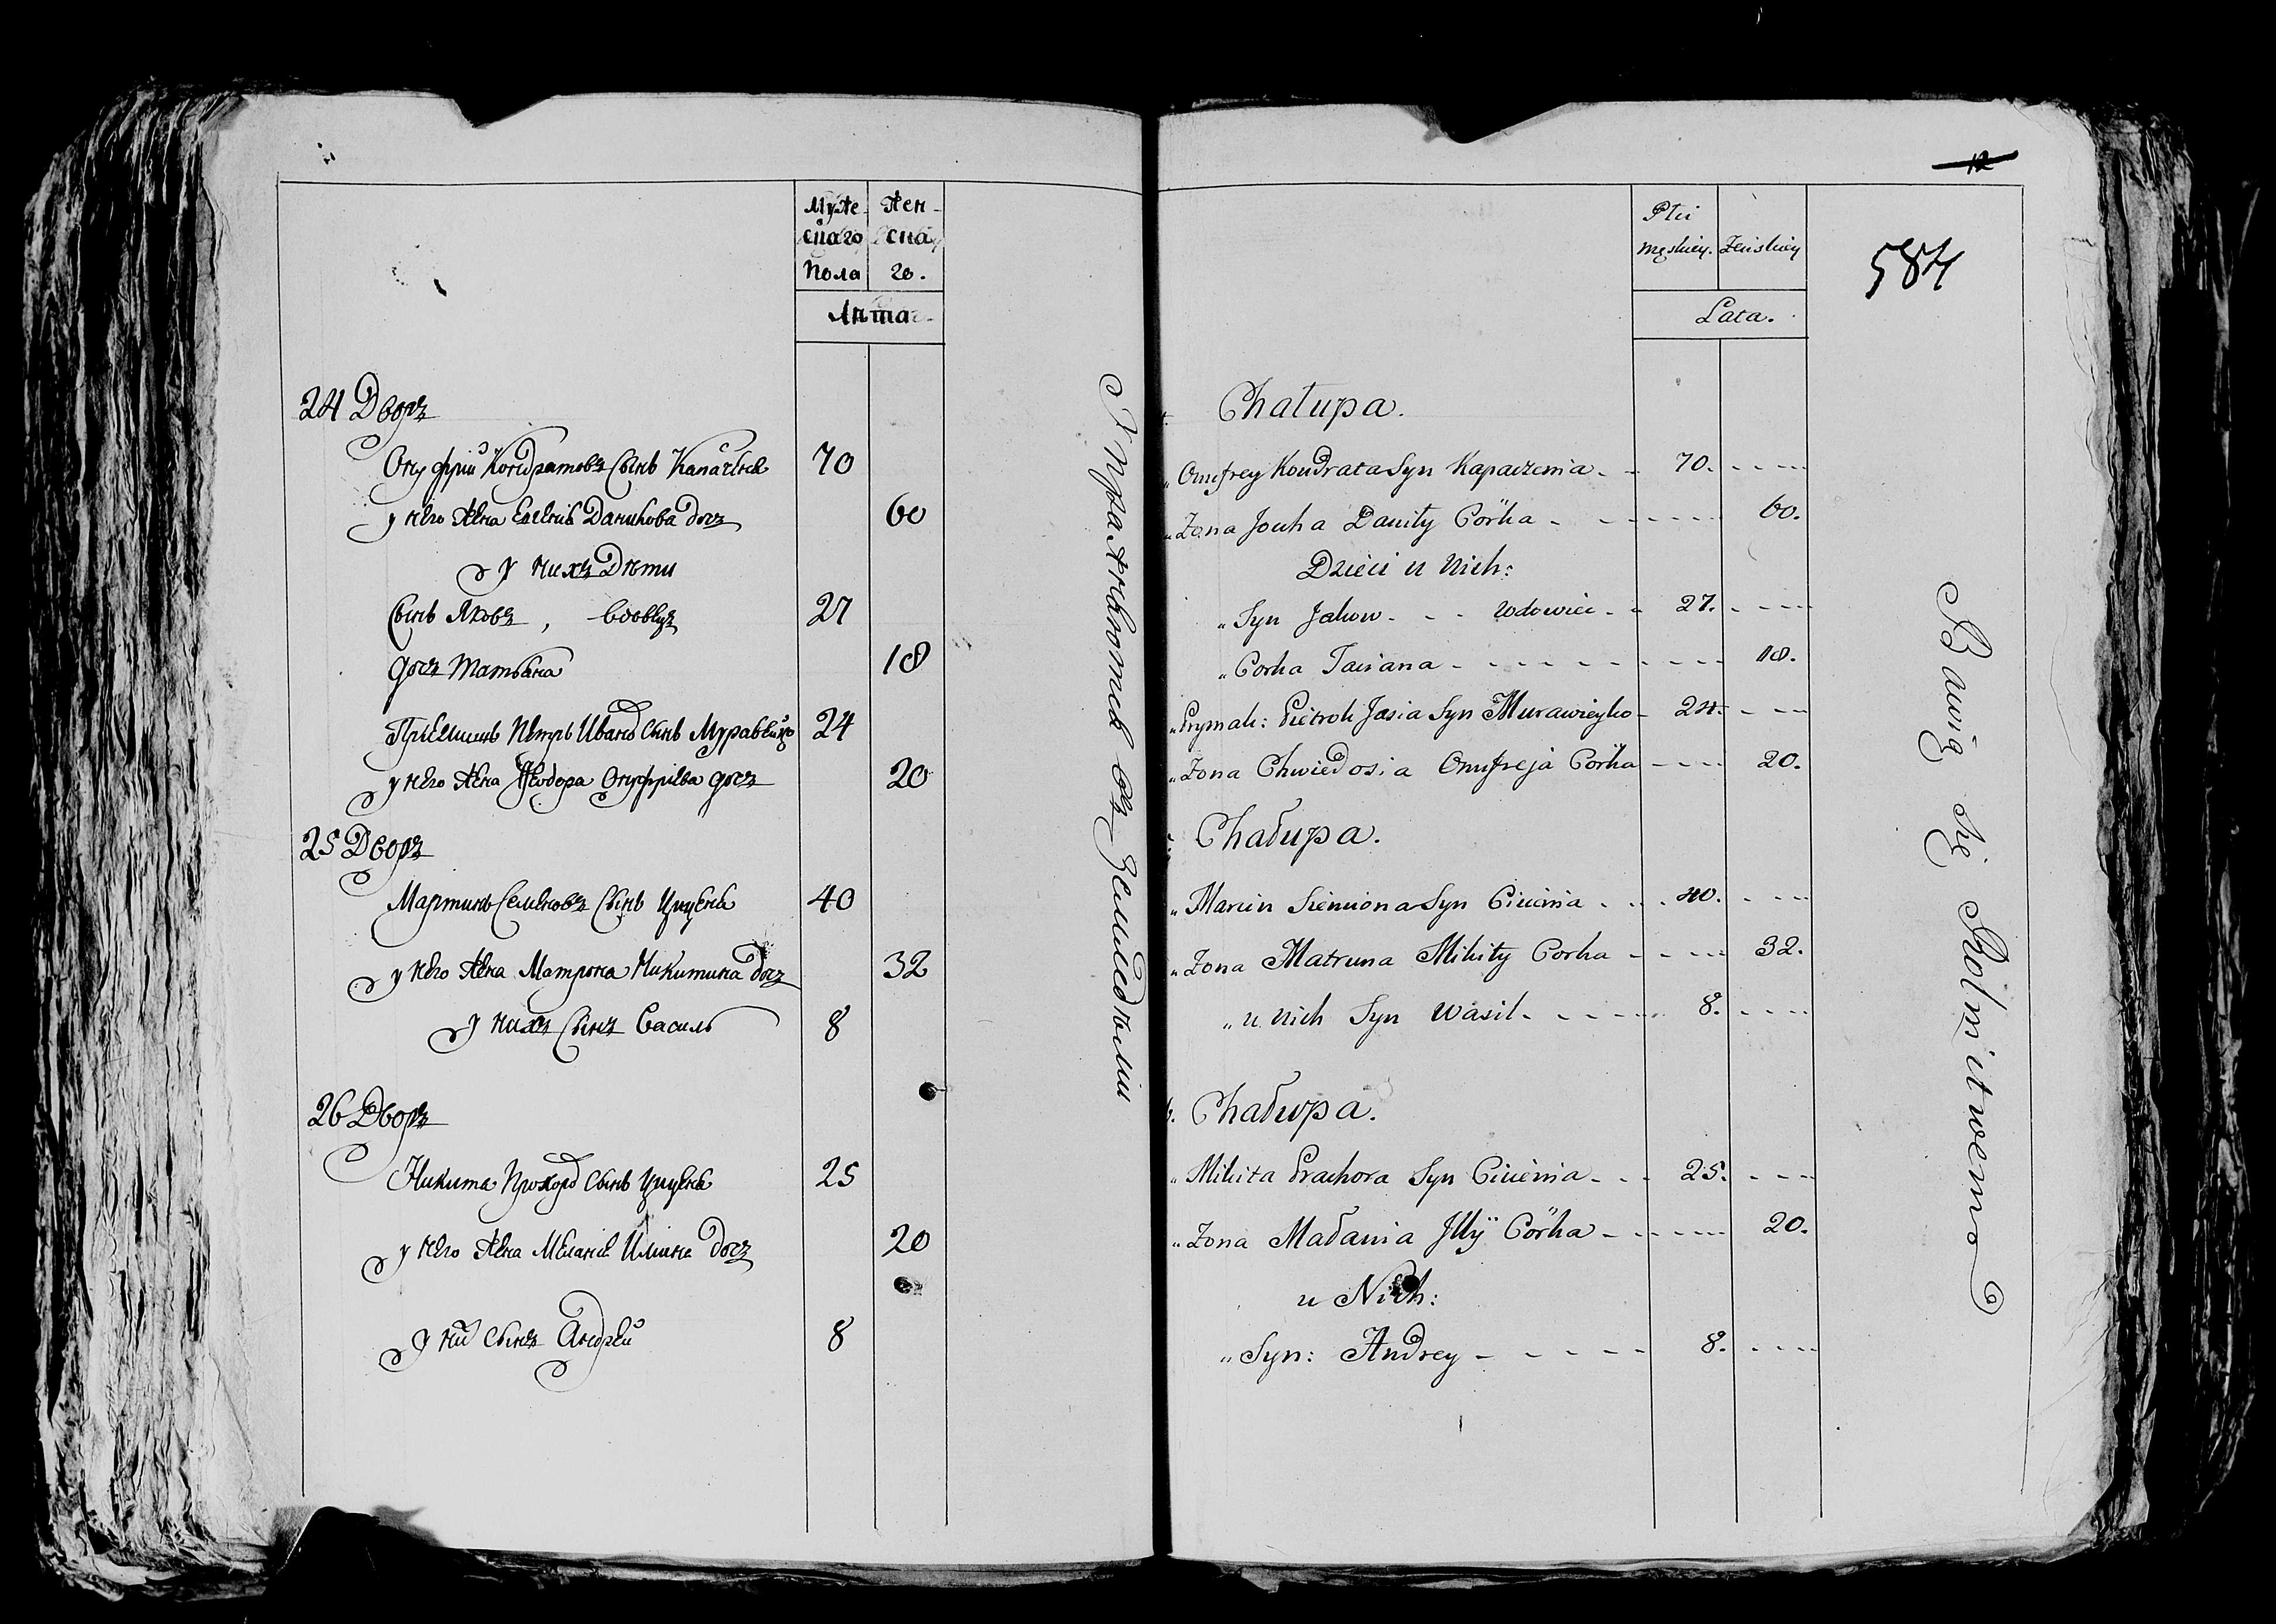 Муже- Жен-
скаго ска
пола го.
Лѣта
24 Дворъ
Онуфрій Кондратовъ сынъ Капачѣня 70
у него жена Евгенія Данилова дочь 60
у нихъ Дѣти
сынъ Яковъ, вдовецъ 27
дочь Татьяна 18
Пріемышъ Петръ Иванов сынъ Муравейко 24
у него жена Ѳеодора Онуфріева дочь 20
25 Дворъ
Мартинъ Семеновъ сынъ Цицѣня 40
у него жена Матрона Никитина дочь 32
у нихъ сынъ Василь 8
26 Дворъ
Никита Прохоров сынъ Цицѣня 25
у него жена Меланія Ильина дочь 20
у ний сынъ Андрей 8
Упражняются въ земледѣліи
12
584
Płci
męskiey. Zeńskiey
Lata.
Chałupa.
„ Onufrey Kondrata Syn Kapaczenia - - 70. - - - -
„ Zona Jouha Daniły Córka - - - - - 60.
Dzieci u Nich:
„ Syn Jakow - - wdowiec - - 27. - - - -
„ Corka Taciana - - - - - - - - 18.
„ Prymak: Pietrok Jasia Syn Murawieyko - 24. - - -
„ Zona Chwiedosia Onufreja Córka - - - - 20.
Chałupa.
„ Marcin Siemiona Syn Ciucienia - - - 40. - - - -
„ Zona Matruna Mikity Corka - - - - 32.
„ u Nich Syn Wasil - - - - - 8. - - - -
Chałupa.
„ Mikita Prachora Syn Ciucienia - - - 25. - - - -
„ Zona Małania Jllÿ Córka - - - - - 20.
u Nich:
„ Syn: Andrey - - - - - 8. - - - -
Bawią się Rolnictwem